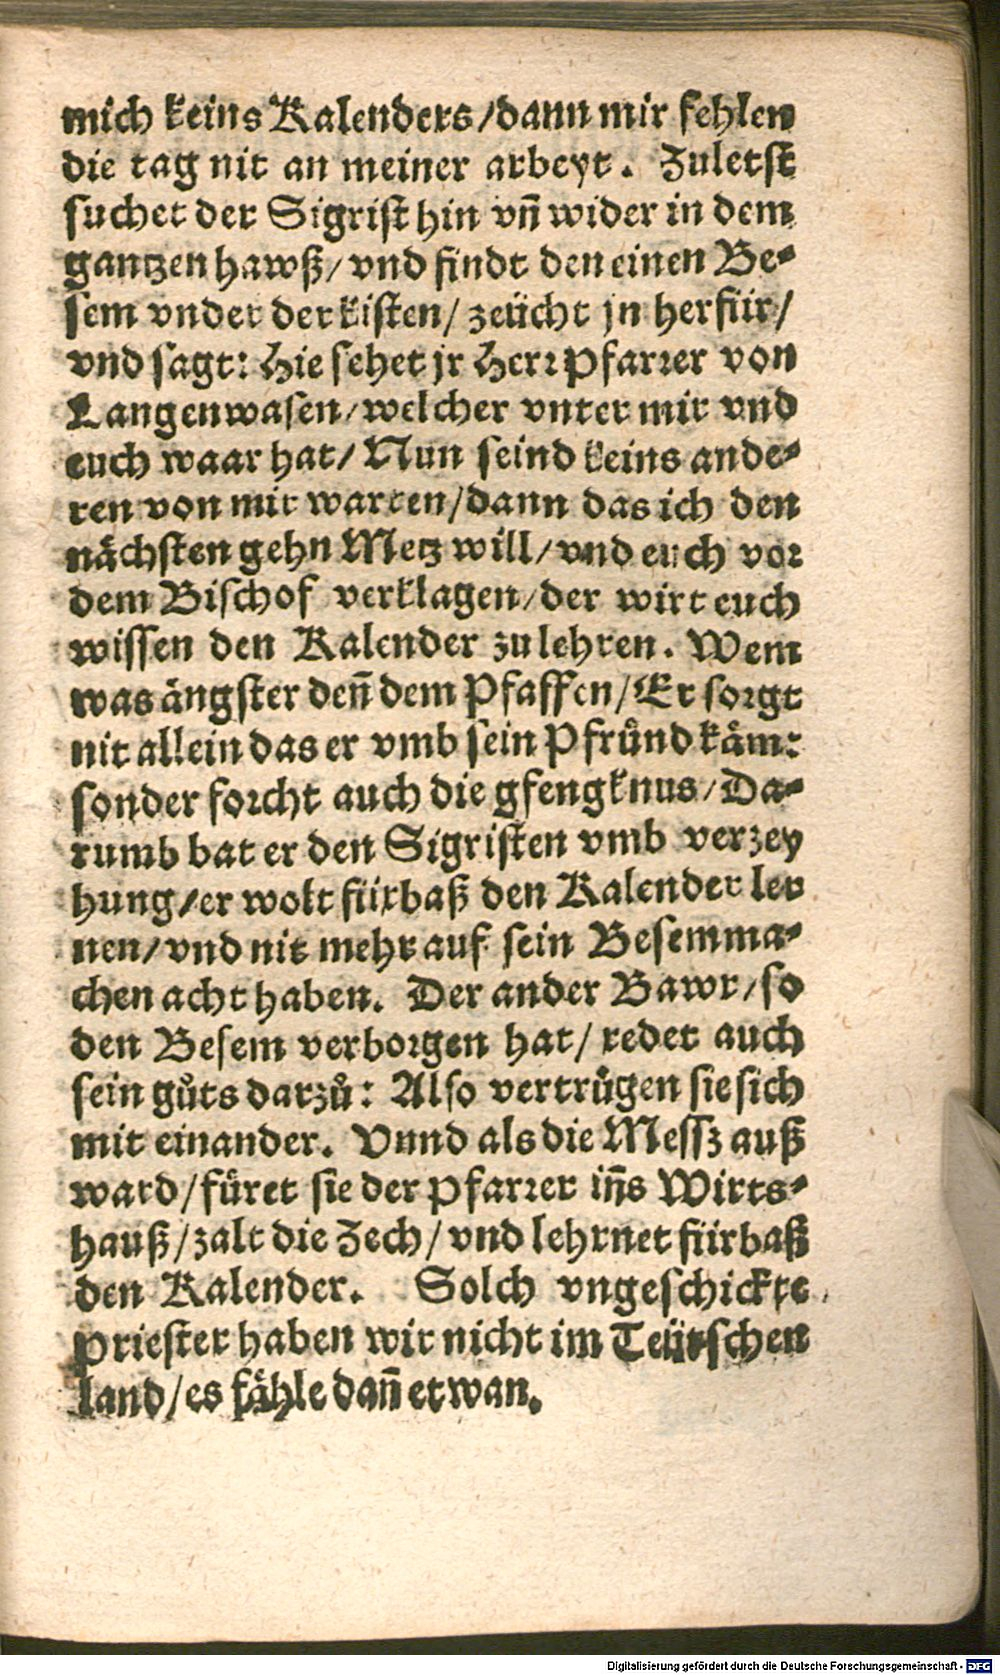 mich keins Kalenders/dann mir fehlen
die tag nit an meiner arbeyt. Zuletst
suchet der Sigrist hin vn̄ wider in dem
gantzen hawß/vnd findt den einen Be-
sem vnder der kisten/ zeücht jn herfür/
vnd sagt: Hie sehet jr Herr Pfarrer von
Langenwasen/welcher vnter mir vnd
euch waar hat/ Nun seind keins ande-
ren von mir warten/dann das ich den
nächsten gehn Metz will/vnd euch vor
dem Bischof verklagen/der wirt euch
wissen den Kalender zu lehren. Wem
was ängster den̄ dem Pfaffen/Er sorgt
nit allein das er vmb sein Pfrůnd käm:
sonder forcht auch die gfengknus/Da-
rumb bat er den Sigristen vmb verzey
hung/er wolt fürbaß den Kalender ler
nen/vnd nit mehr auf sein Besemma-
chen acht haben. Der ander Bawr/so
den Besem verborgen hat/ redet auch
sein gůts darzů: Also vertrůgen sie sich
mit einander. Vnnd als die Messz auß
ward/füret sie der Pfarrer in̄s Wirts-
hauß/zalt die Zech/vnd lehrnet fürbaß
den Kalender. Solch vngeschickte
Priester haben wir nicht im Teütschen
land/es fähle dan̄ etwan.
Digitalisierung gefördert durch die Deutsche Forschungsgemeinschaft - DFG